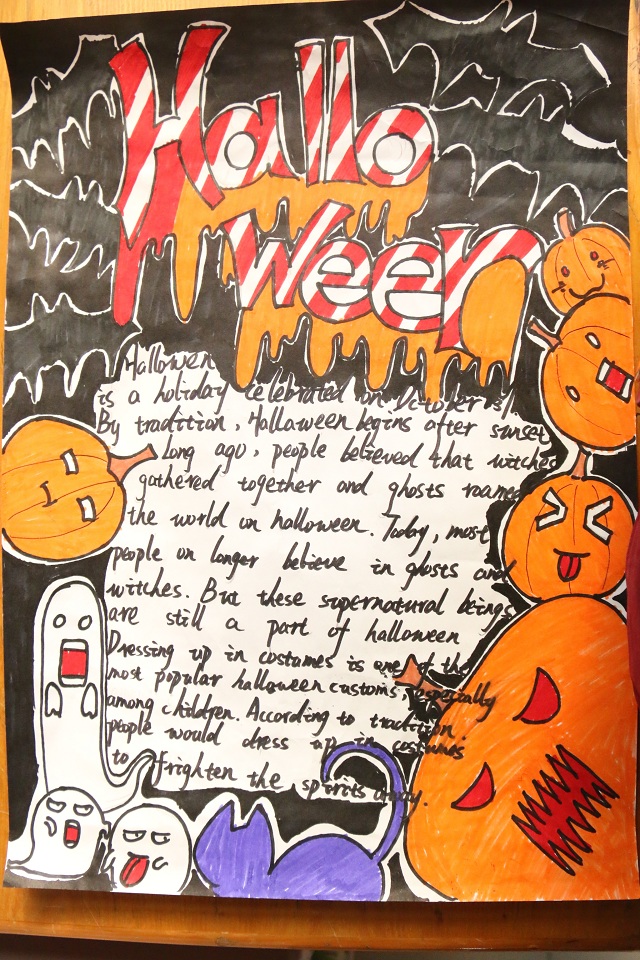 Hallo
Ween
Hallowen
is a holiday celebrated on October 31
By tradition, Hallaween begins after sunset
Long ago, people believed that witches
gathered together and ghosts roamed
the world on halloween. Today, most
people on longer believe in ghosts and
witches. But these supernatural beings
are still a part of halloween
Dressing up in costumes is one of the
most popular halloween customs, especially
among children. According to tradition,
people would dress up in costumes
to frighten the spirits away.